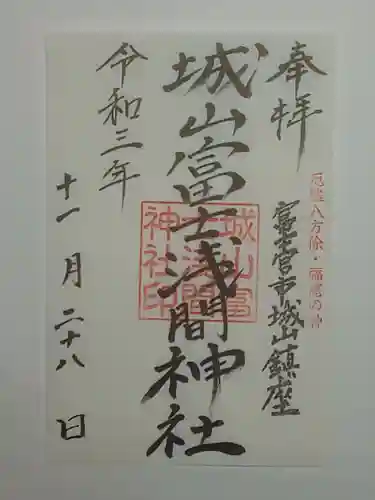 奉拝
厄除八方除・福尾の神
富士宮市城山鎮座
城山富士浅間神社
城山富
士浅間
神社印
令和三年
十一月二十八日